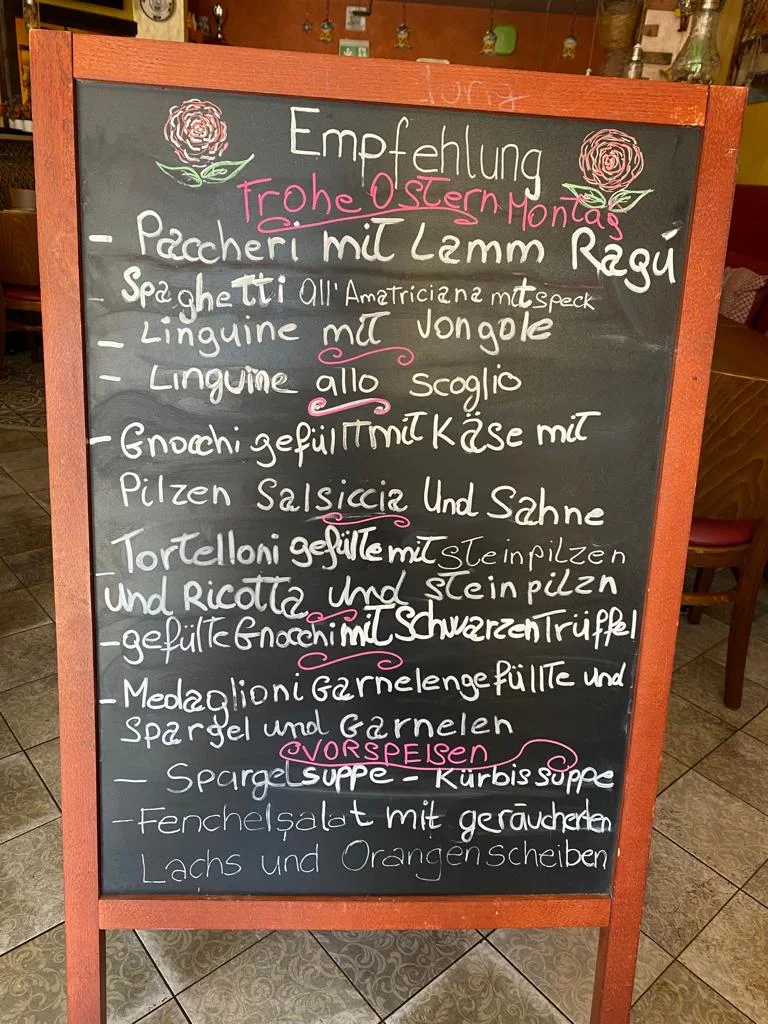 Empfehlung
Frohe Ostern Montag
- Paccheri mit Lamm Ragú
- Spaghetti all'Amatriciana mit speck
- Linguine mit Vongole
- Linguine allo scoglio
- Gnocchi gefüllt mit Käse mit
Pilzen Salsiccia Und Sahne
- Tortelloni gefüllte mit steinpilzen
und Ricotta und steinpilzn
- gefüllte Gnocchi mit Schwarzen Trüffel
- Medaglioni Garnelengefüllte und
Spargel und Garnelen
VORSPEISEN
- Spargelsuppe - Kürbissuppe
- Fenchelsalat mit geräucherten
Lachs und Orangenscheiben